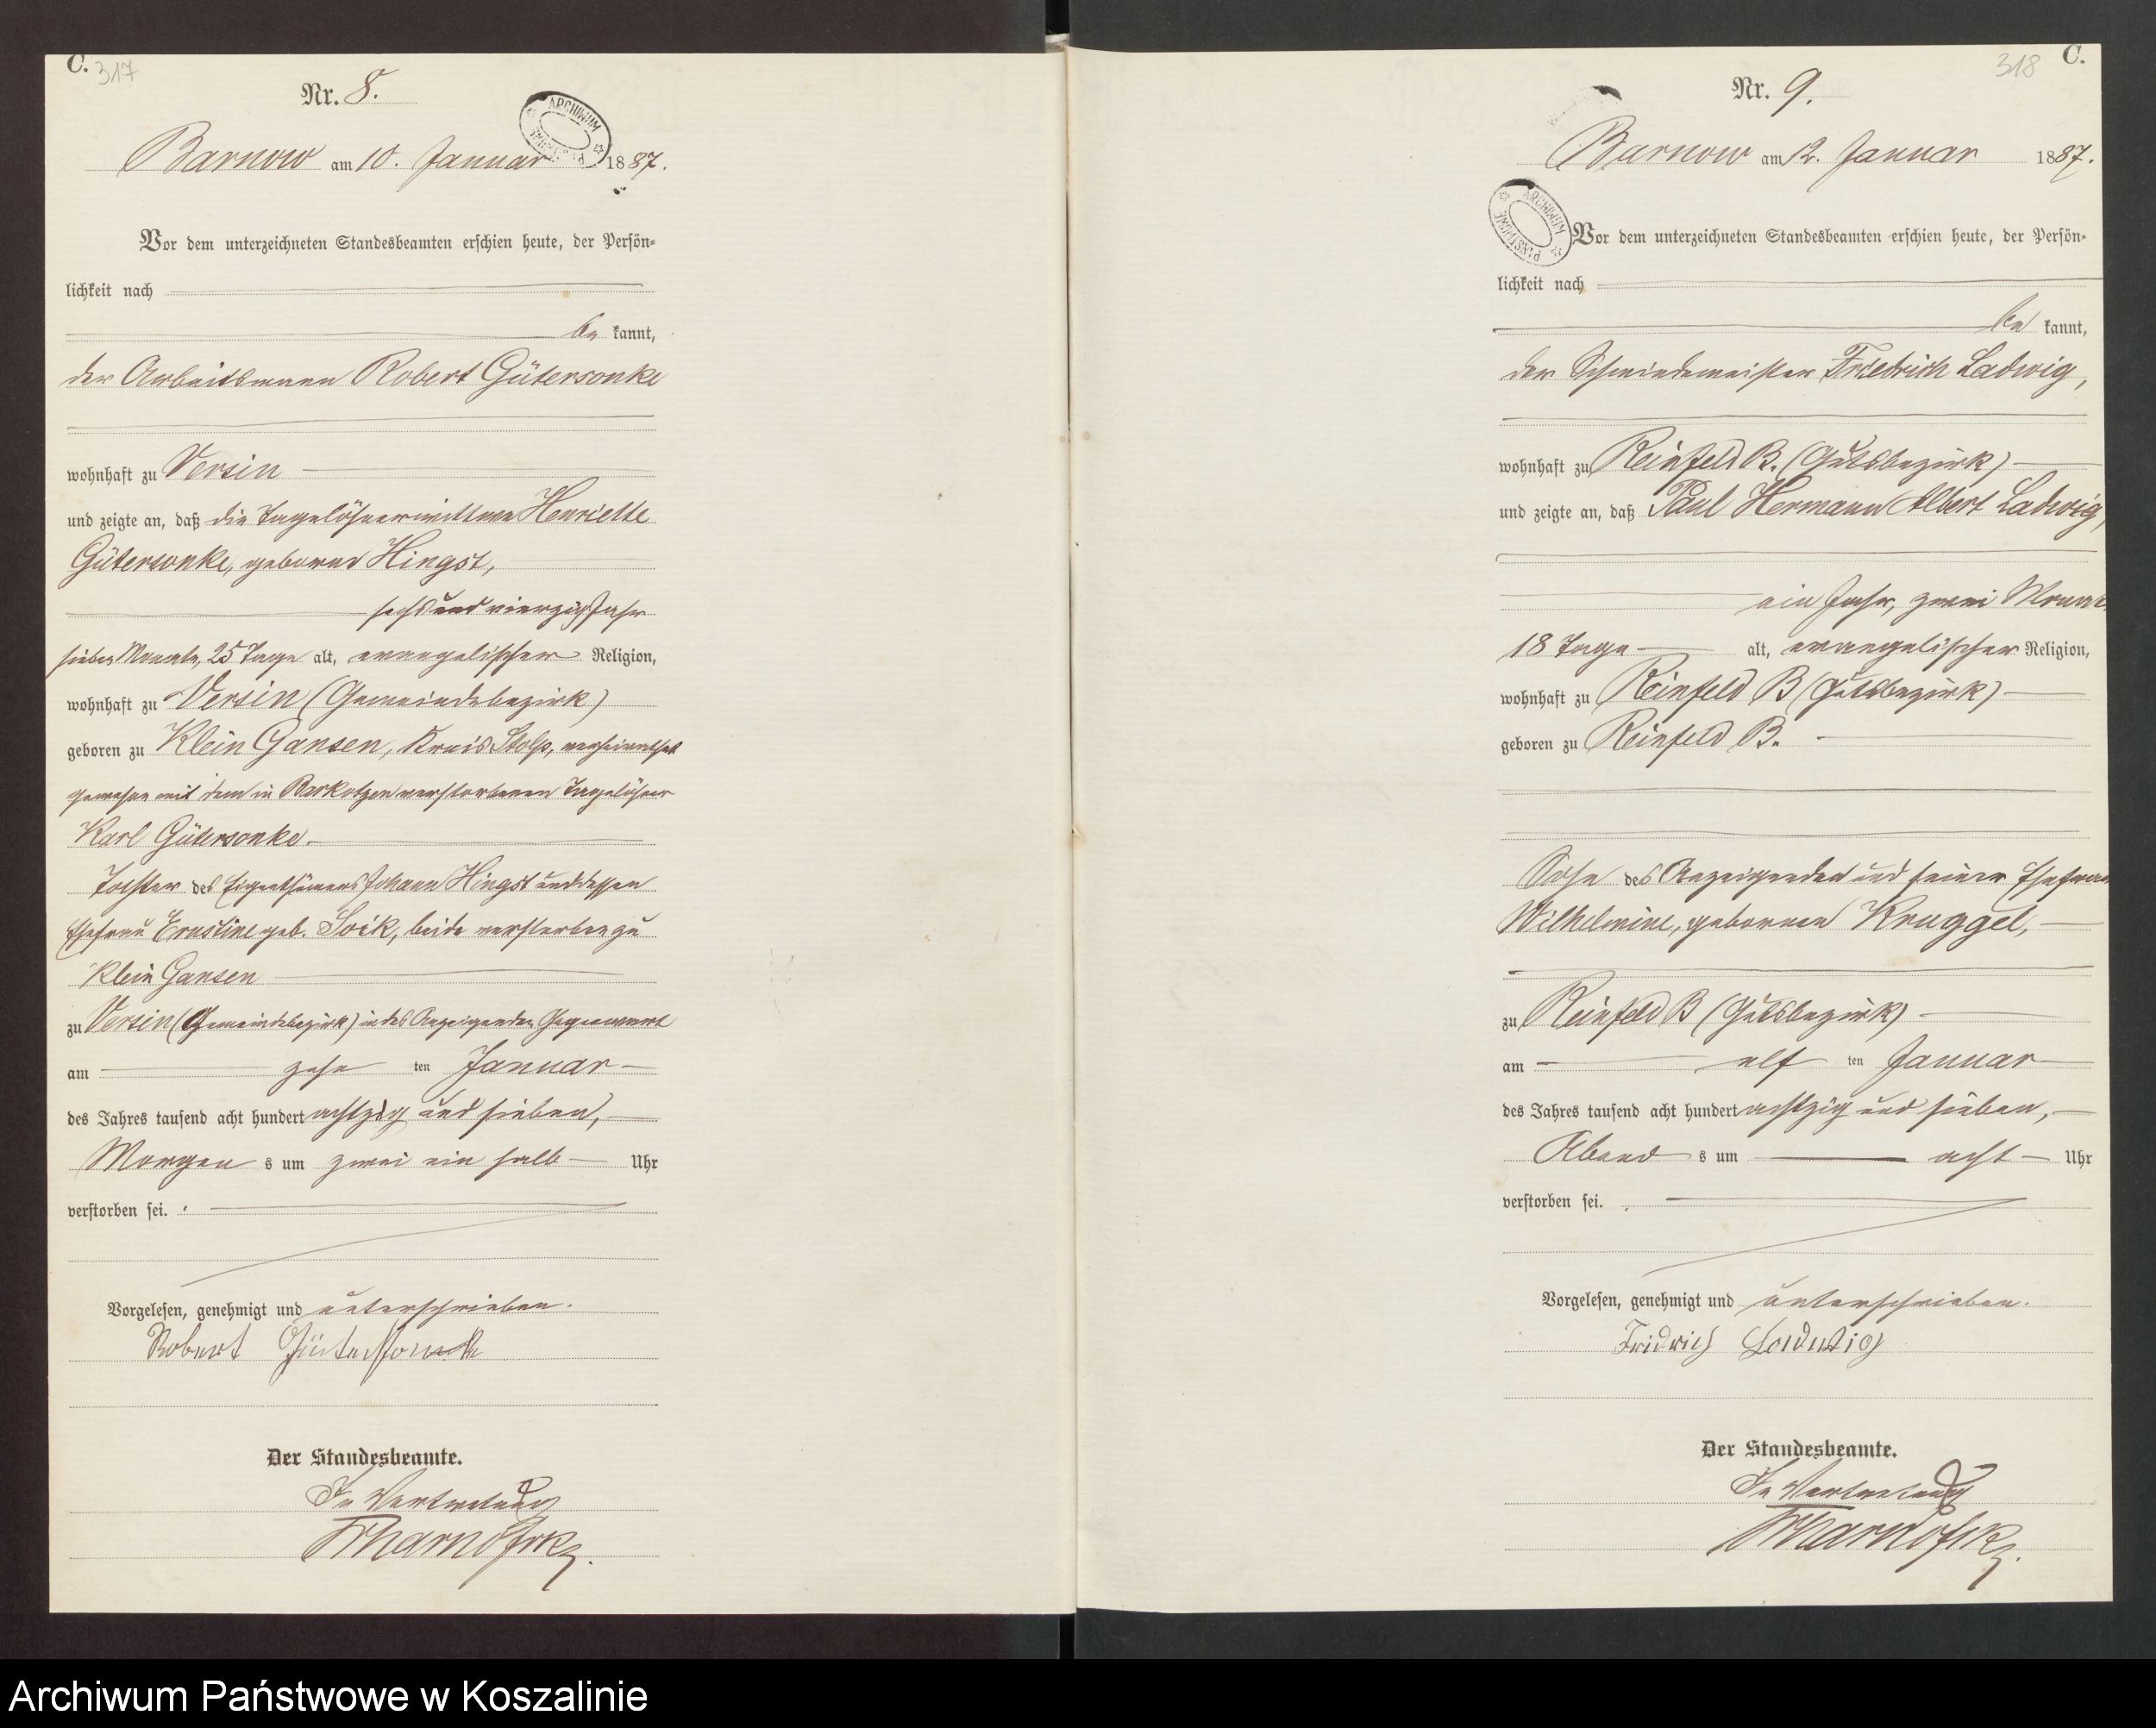 C. 317
Nr. 8.
ARCHIWUM
Barnow am 10. Januar 1887.
Vor dem unterzeichneten Standesbeamten erschien heute, der Persön=
lichkeit nach
be kannt,
der Arbeitsmann Robert Gütersonke
wohnhaft zu Versin
und zeigte an, daß die Tagelöhnerwittwe Henriette
Gütersonke, geborne Hingst,
sechs und vierzig Jahr
sieben Monate, 25 Tage alt, evangelischer Religion,
wohnhaft zu Versin (Gemeindebezirk)
geboren zu Klein Gansen, Kreis Stolp, verheirathet
gewesen mit dem in Barkotzen verstorbenen Tagelöhner
Karl Gütersonke.
Tochter des Eigenthümers Johann Hingst und dessen
Ehefrau Ernstine geb. Soik, beide verstorben zu
Klein Gansen
zu Versin (Gemeindebezirk) in des Anzeigenden Gegenwart
am zehn ten Januar
des Jahres tausend acht hundert achtzig und sieben,
Morgen s um zwei ein halb Uhr
verstorben sei.
Vorgelesen, genehmigt und unterschrieben.
Robert
Der Standesbeamte.
In Vertretung
C. 318
Nr. 9.
Barnow am 12. Januar 1887.
ARCHIWUM PAŃSTWOWE
Vor dem unterzeichneten Standesbeamten erschien heute, der Persön=
lichkeit nach
be kannt,
der Schmiedemeister Friedrich Ladwig,
wohnhaft zu Reinfeld B. (Gutsbezirk)
und zeigte an, daß Paul Hermann Albert Ladwig,
ein Jahr, zwei Monate
18 Tage alt, evangelischer Religion,
wohnhaft zu Reinfeld B (Gutsbezirk)
geboren zu Reinfeld B.
Sohn des Anzeigenden und seiner Ehefrau
Wilhelmine, gebornen Kruggel,
zu Reinfeld B (Gutsbezirk)
am elf ten Januar
des Jahres tausend acht hundert achtzig und sieben,
Abend s um acht Uhr
verstorben sei.
Vorgelesen, genehmigt und unterschrieben.
Fridrich Ladwig
Der Standesbeamte.
In Vertretung
Archiwum Państwowe w Koszalinie